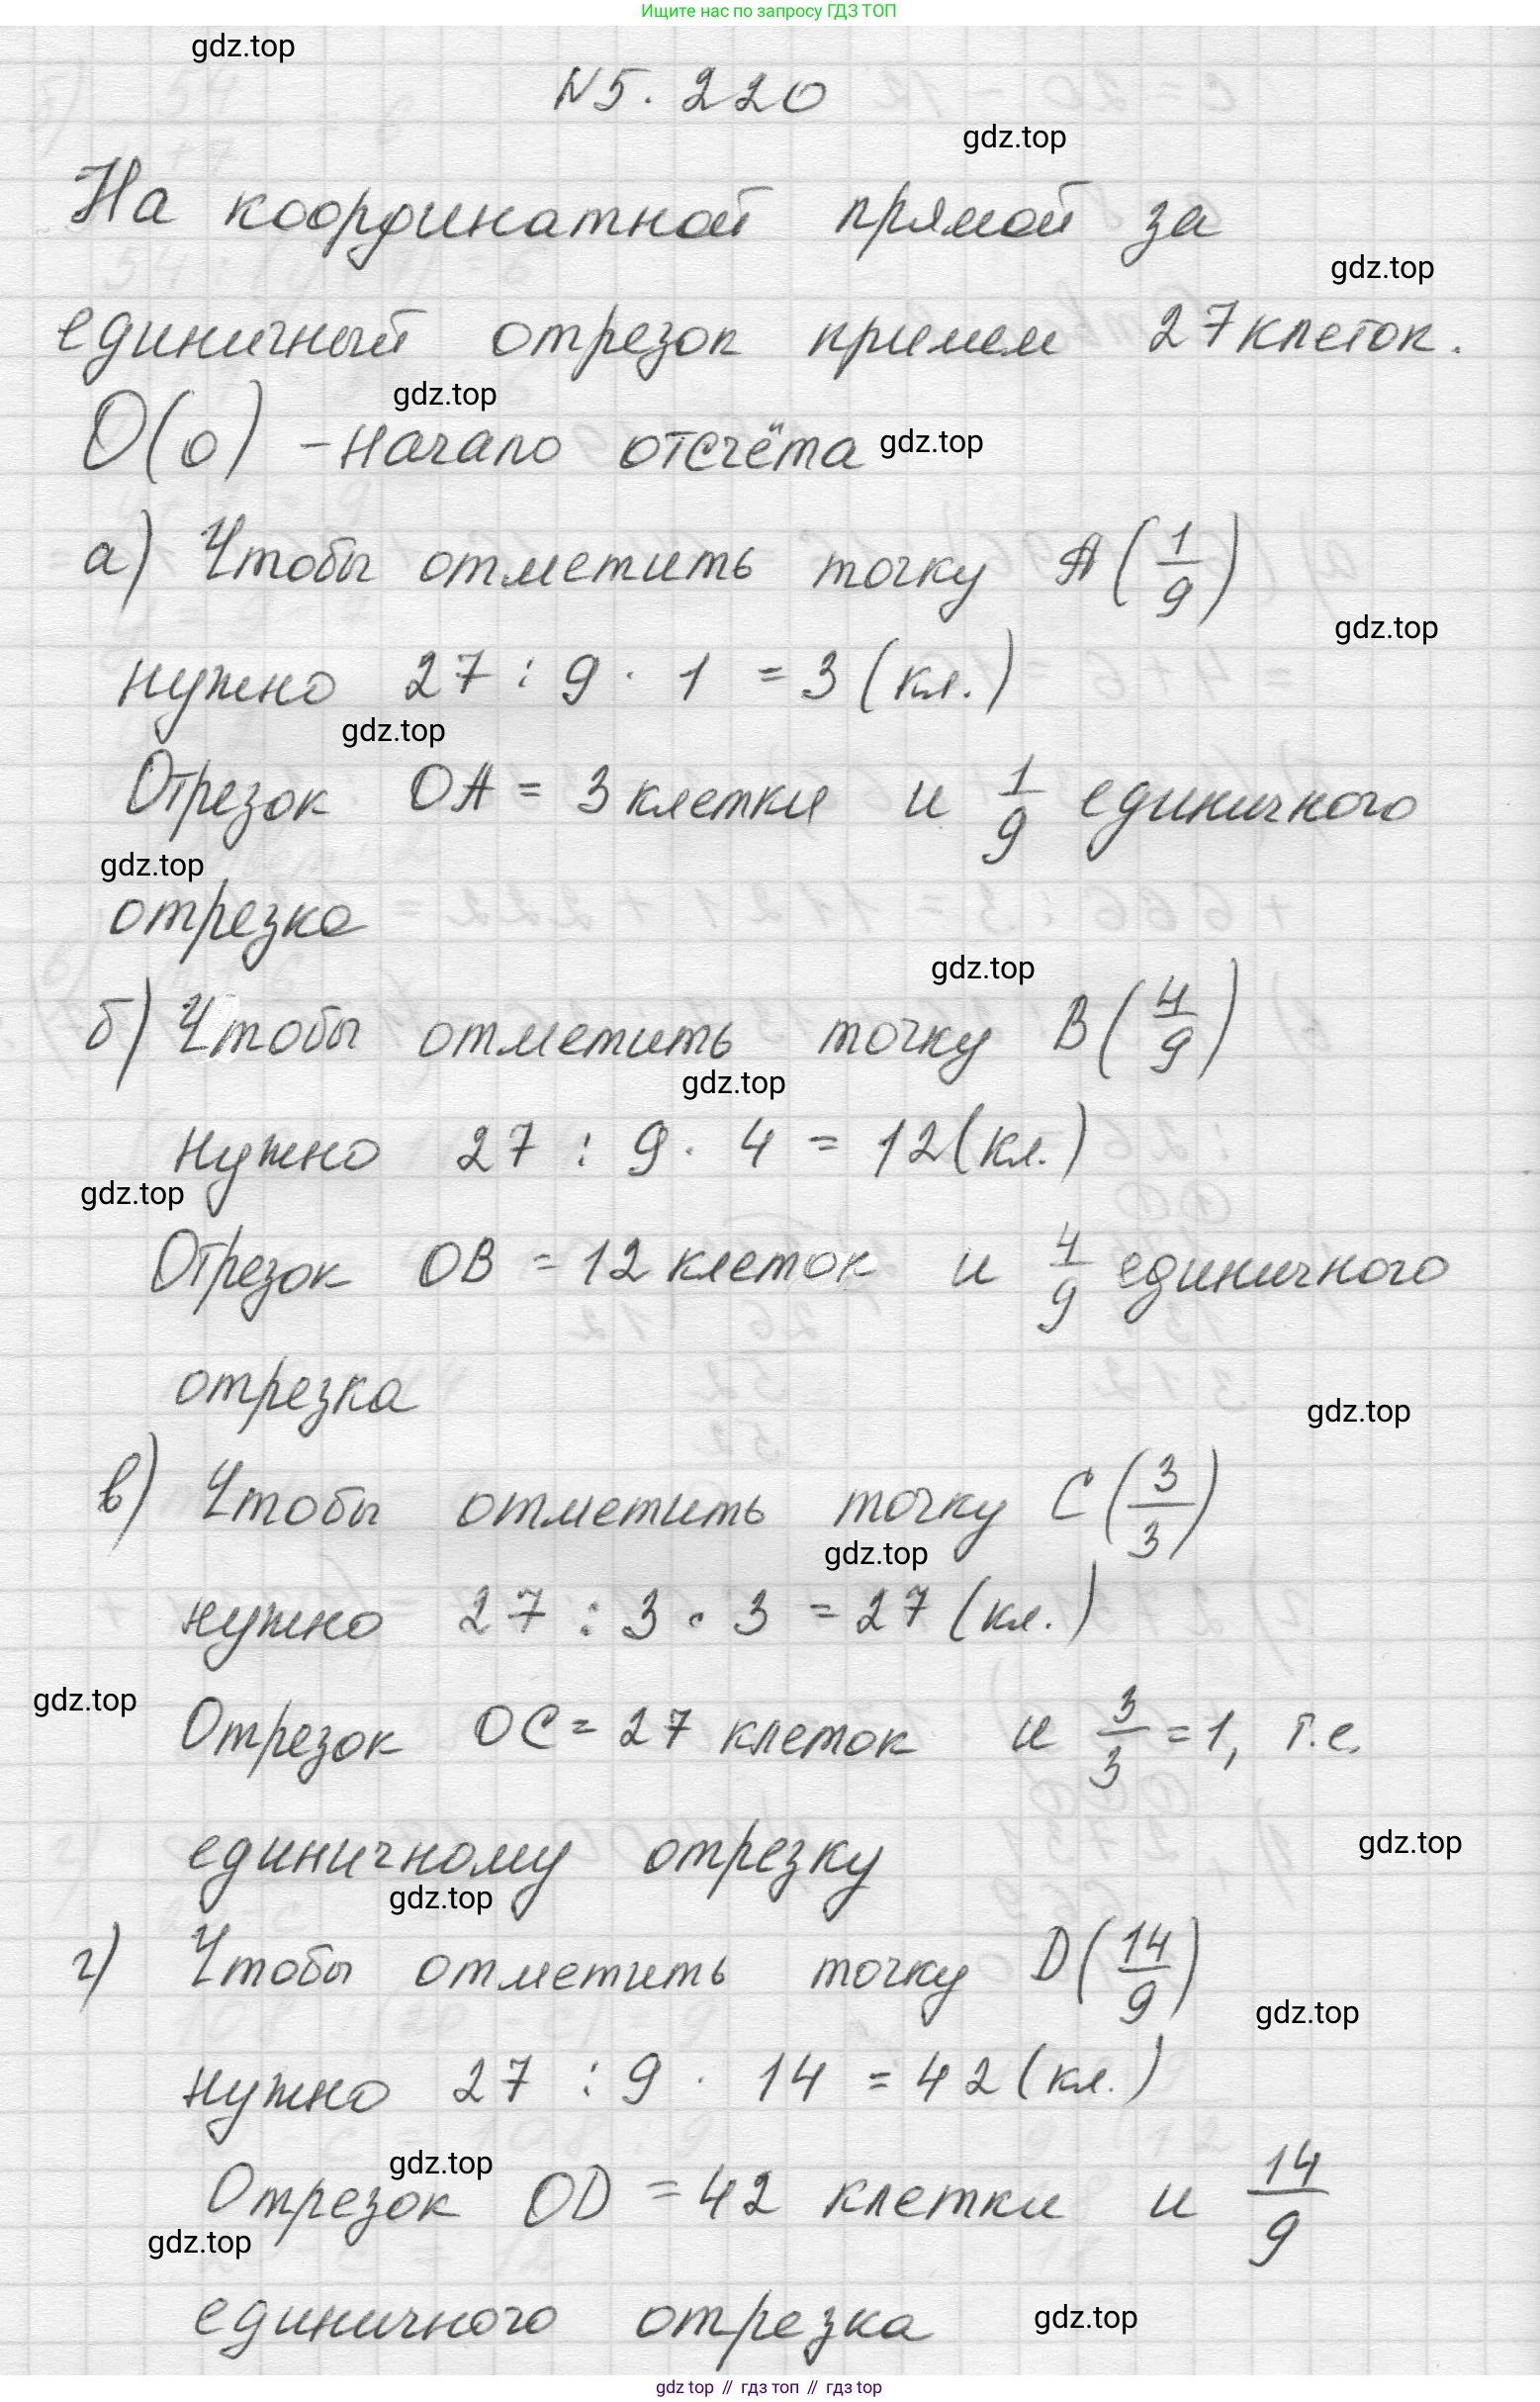 Ищите нас по запросу ГДЗ ТОП
gdz.top
N 5. 220
gdz.top
На координатной прямой за
gdz.top
единичный отрезок примем 27 клеток.
gdz.top
O(0) - начало отсчёта gdz.top
а) Чтобы отметить точку A(1/9)
gdz.top
нужно 27 : 9 · 1 = 3 (кл.)
gdz.top
Отрезок OA = 3 клетки и 1/9 единичного
gdz.top
отрезка
gdz.top
б) Чтобы отметить точку B(4/9)
gdz.top
нужно 27 : 9 · 4 = 12 (кл.)
gdz.top
Отрезок OB = 12 клеток и 4/9 единичного
отрезка
gdz.top
в) Чтобы отметить точку C(3/3)
gdz.top
нужно 27 : 3 · 3 = 27 (кл.)
gdz.top
Отрезок OC = 27 клеток и 3/3 = 1, т.е.
единичному отрезку
gdz.top
gdz.top
г) Чтобы отметить точку D(14/9)
gdz.top
нужно 27 : 9 · 14 = 42 (кл.)
gdz.top
Отрезок OD = 42 клетки и 14/9
gdz.top
единичного отрезка
gdz.top
gdz top // гдз топ // гдз top